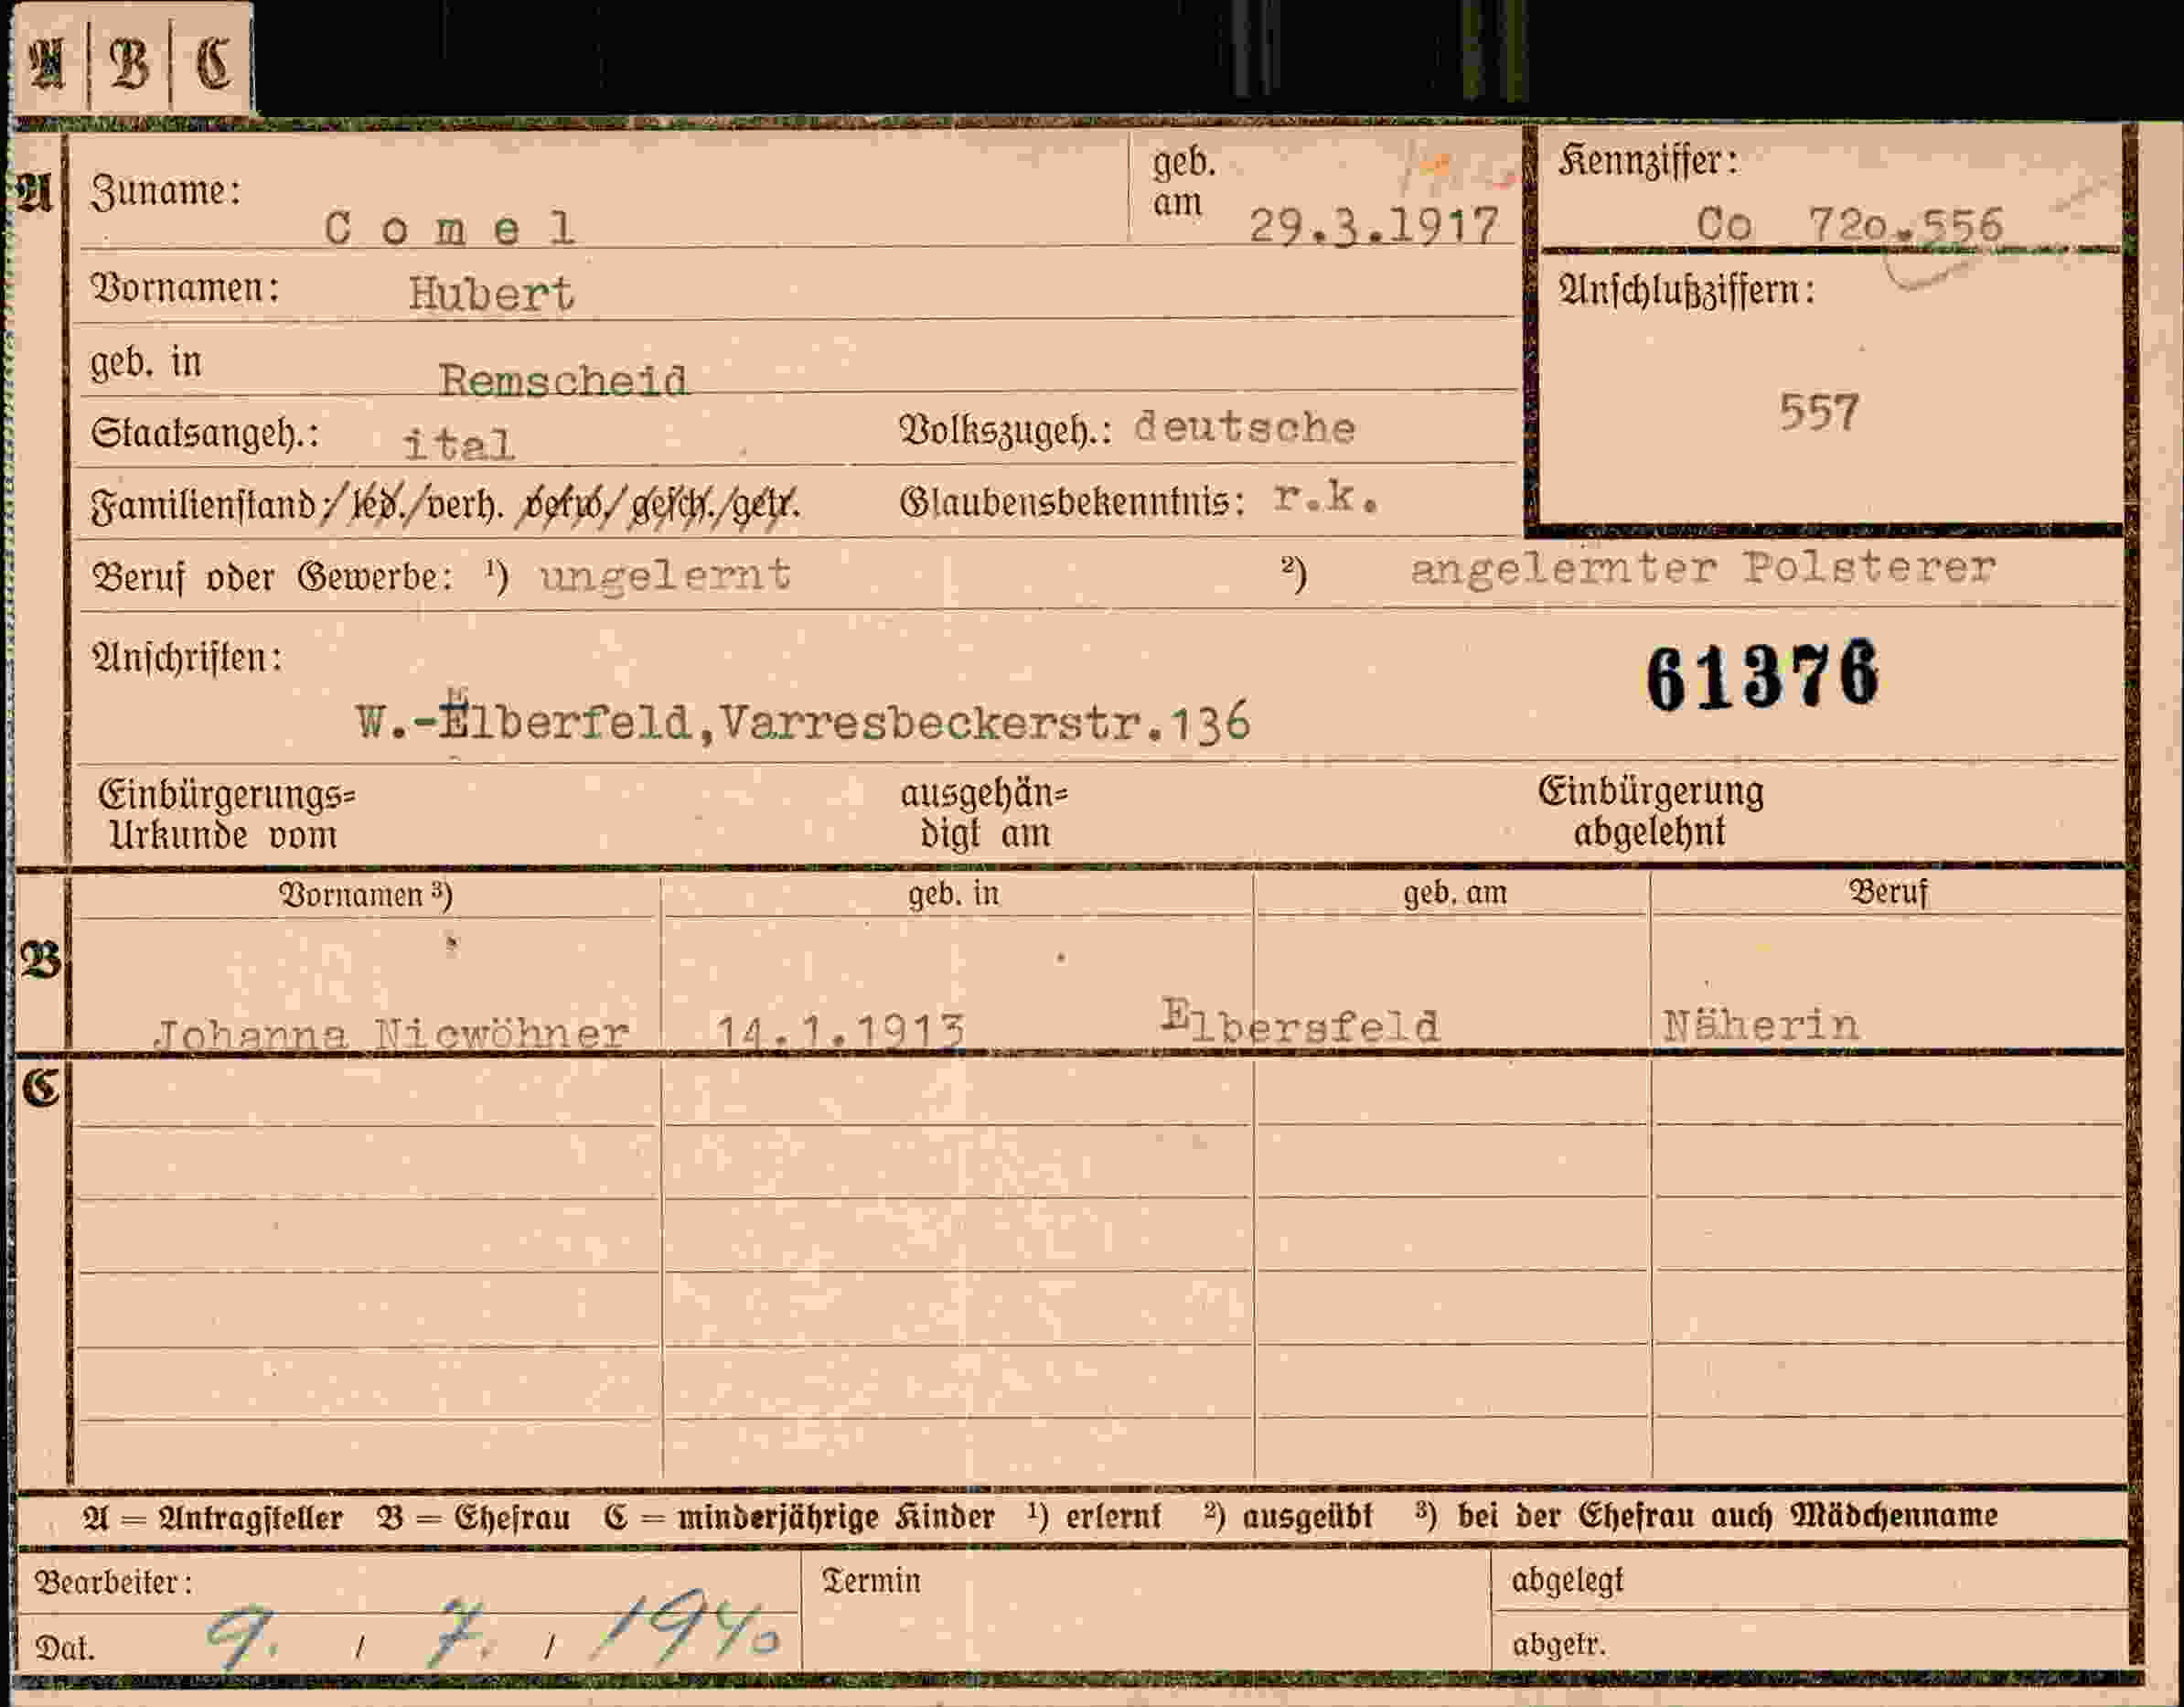 A | B | C
A
Zuname: Comel
geb. am 29.3.1917
Kennziffer: Co 720.556
Vornamen: Hubert
Anschlußziffern: 557
geb. in Remscheid
Staatsangeh.: ital
Volkszugeh.: deutsche
Familienstand: / led. / verh. verw. / gesch. / getr.
Glaubensbekenntnis: r.k.
Beruf oder Gewerbe: ¹) ungelernt ²) angelernter Polsterer
Anschriften: 61376
W.-Elberfeld,Varresbeckerstr.136
Einbürgerungs=
Urkunde vom
ausgehän=
digt am
Einbürgerung
abgelehnt
B
Vornamen ³) geb. in geb. am Beruf
Johanna Niewöhner 14.1.1913 Elbersfeld Näherin
C
A = Antragsteller B = Ehefrau C = minderjährige Kinder ¹) erlernt ²) ausgeübt ³) bei der Ehefrau auch Mädchenname
Bearbeiter:
Dat. 9. / 7. / 1940
Termin
abgelegt
abgetr.